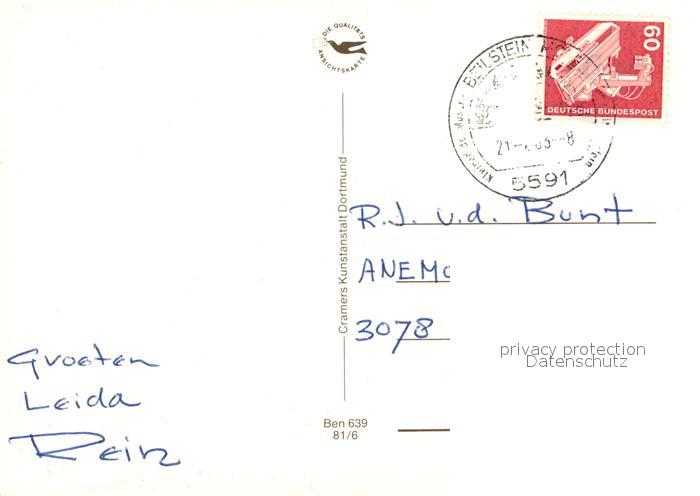 DIE QUALITÄTS
ANSICHTSKARTE
BEILSTEIN
60
DEUTSCHE BUNDESPOST
5591
Cramers Kunstanstalt Dortmund
R.J. v.d. Bunt
ANEMO
3078
privacy protection
Datenschutz
Groeten
Leida
Rein
Ben 639
81/6